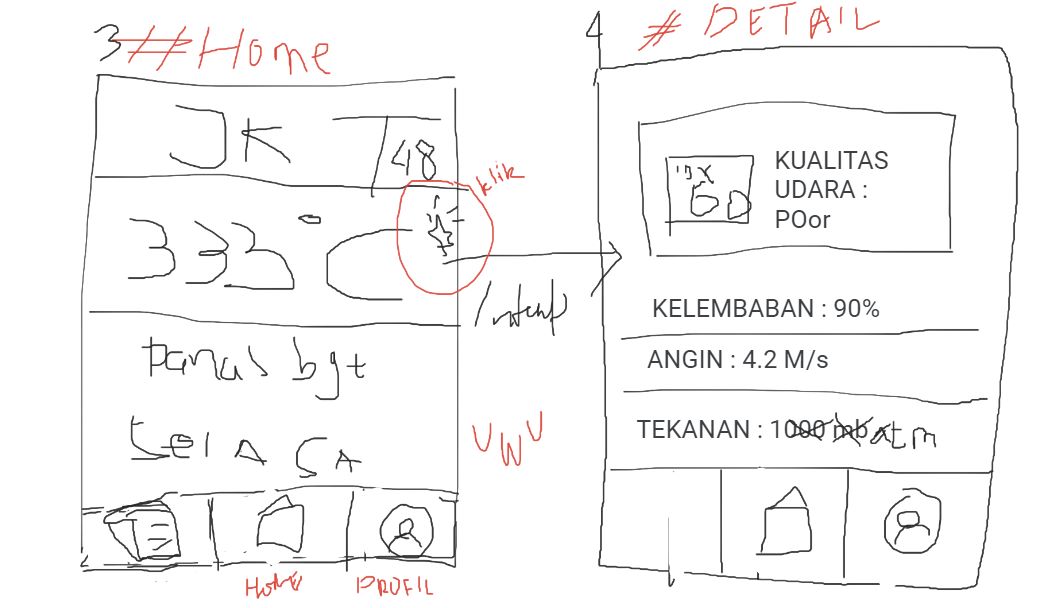 3 # Home
JK
48
klik
333° C
Intent
panas bgt
selasa
UWU
HOME
PROFIL
4 # DETAIL
KUALITAS
UDARA :
POor
KELEMBABAN : 90%
ANGIN : 4.2 M/s
TEKANAN : 1000 mb atm